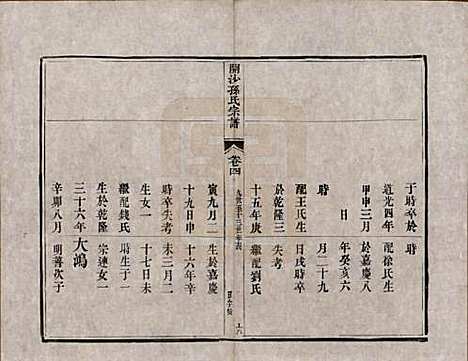 于時卒於
道光四年
甲申三月
日
時
配王氏生
於乾隆三
十五年庚
時
配徐氏生
於嘉慶八
年癸亥六
月二十九
日戌時卒
失考
繼配劉氏
開沙孫氏宗譜
卷四
寅九月二
十九日申
時卒失考
生女一
繼配錢氏
生於乾隆
三十六年
辛卯八月
生於嘉慶
十六年辛
未三月二
十七日
時生子一
宗連女一
大鴻
明善次子